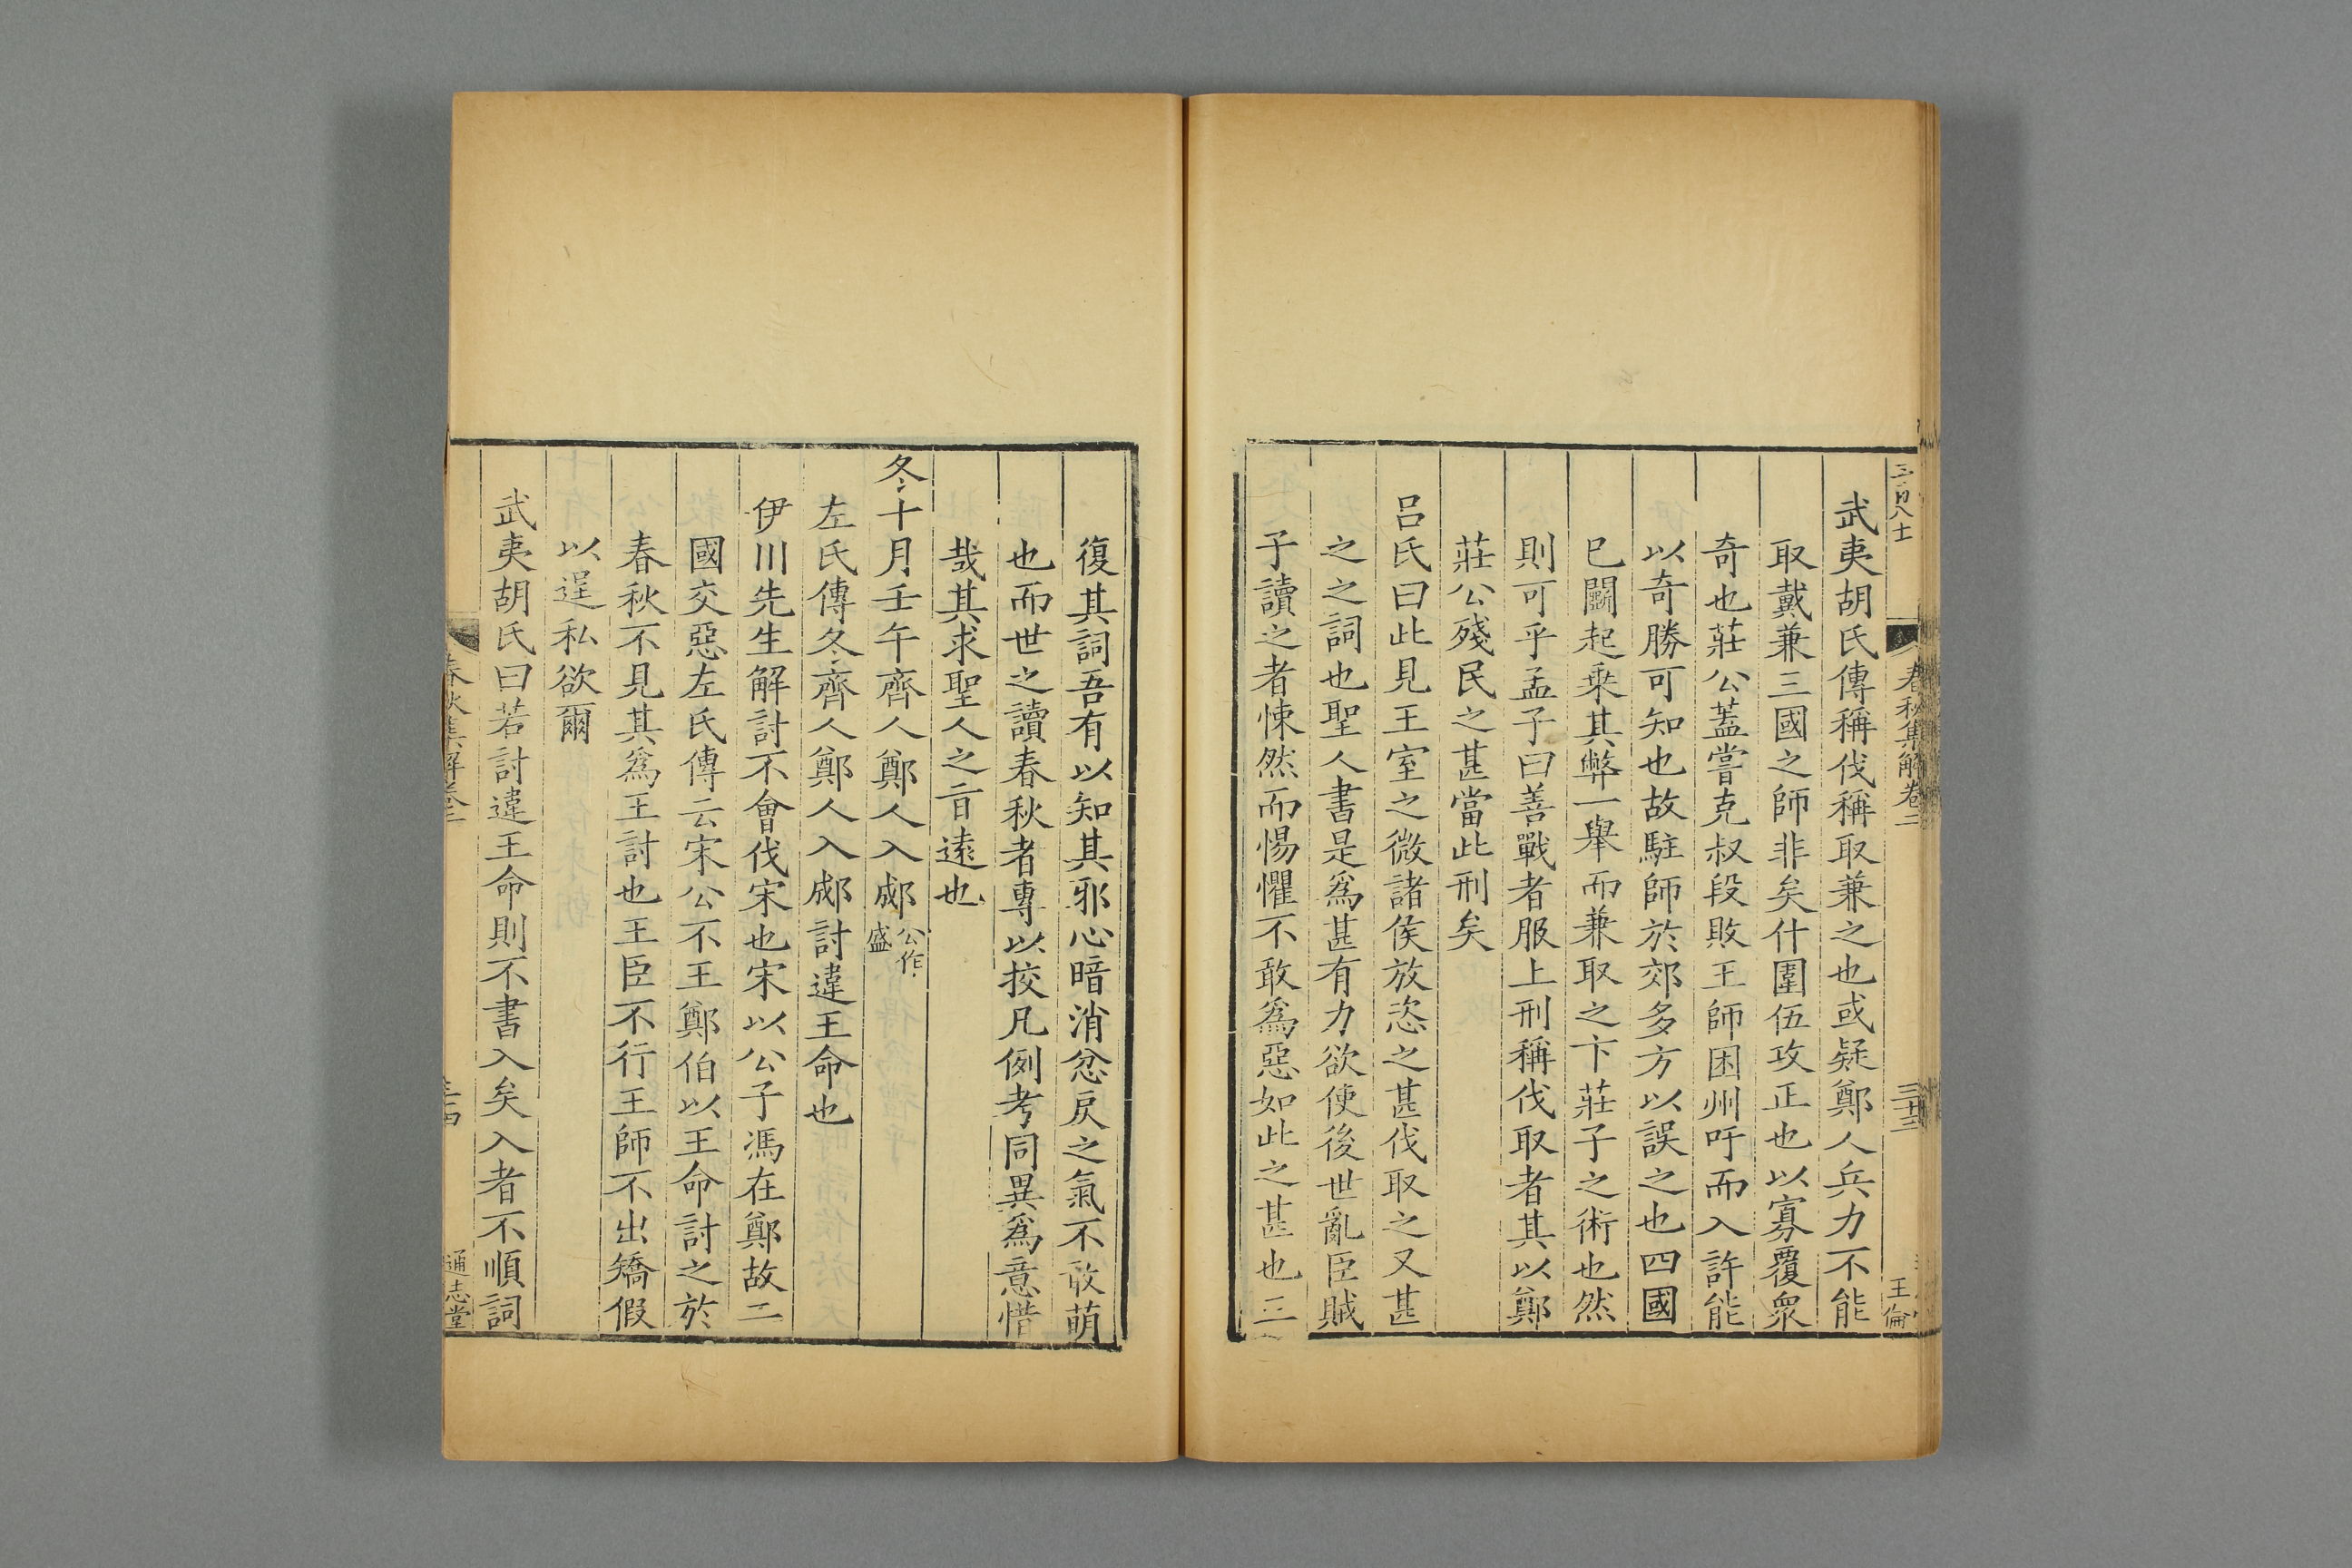 三百八十
春秋集解卷二
三十三
王倫
武夷胡氏傳稱伐稱取兼之也或疑鄭人兵力不能
取戴兼三國之師非矣什圍伍攻正也以寡覆衆
奇也莊公蓋嘗克叔段敗王師困州吁而入許能
以奇勝可知也故駐師於郊多方以誤之也四國
已鬬起乗其弊一舉而兼取之卞莊子之術也然
則可乎孟子曰善戰者服上刑稱伐取者其以鄭
莊公殘民之甚當此刑矣
呂氏曰此見王室之微諸侯放恣之甚伐取之又甚
之之詞也聖人書是爲甚有力欲使後世亂臣賊
子讀之者悚然而惕懼不敢爲惡如此之甚也三
復其詞吾有以知其邪心暗消忿戾之氣不敢萌
也而世之讀春秋者專以挍凡例考同異爲意惜
哉其求聖人之㫖逺也
冬十月壬午齊人鄭人入郕公作盛
左氏傳冬齊人鄭人入郕討違王命也
伊川先生解討不會伐宋也宋以公子馮在鄭故二
國交惡左氏傳云宋公不王鄭伯以王命討之於
春秋不見其爲王討也王臣不行王師不出矯假
以逞私欲爾
武夷胡氏曰若討違王命則不書入矣入者不順詞
春秋集解卷二
三十四
通志堂